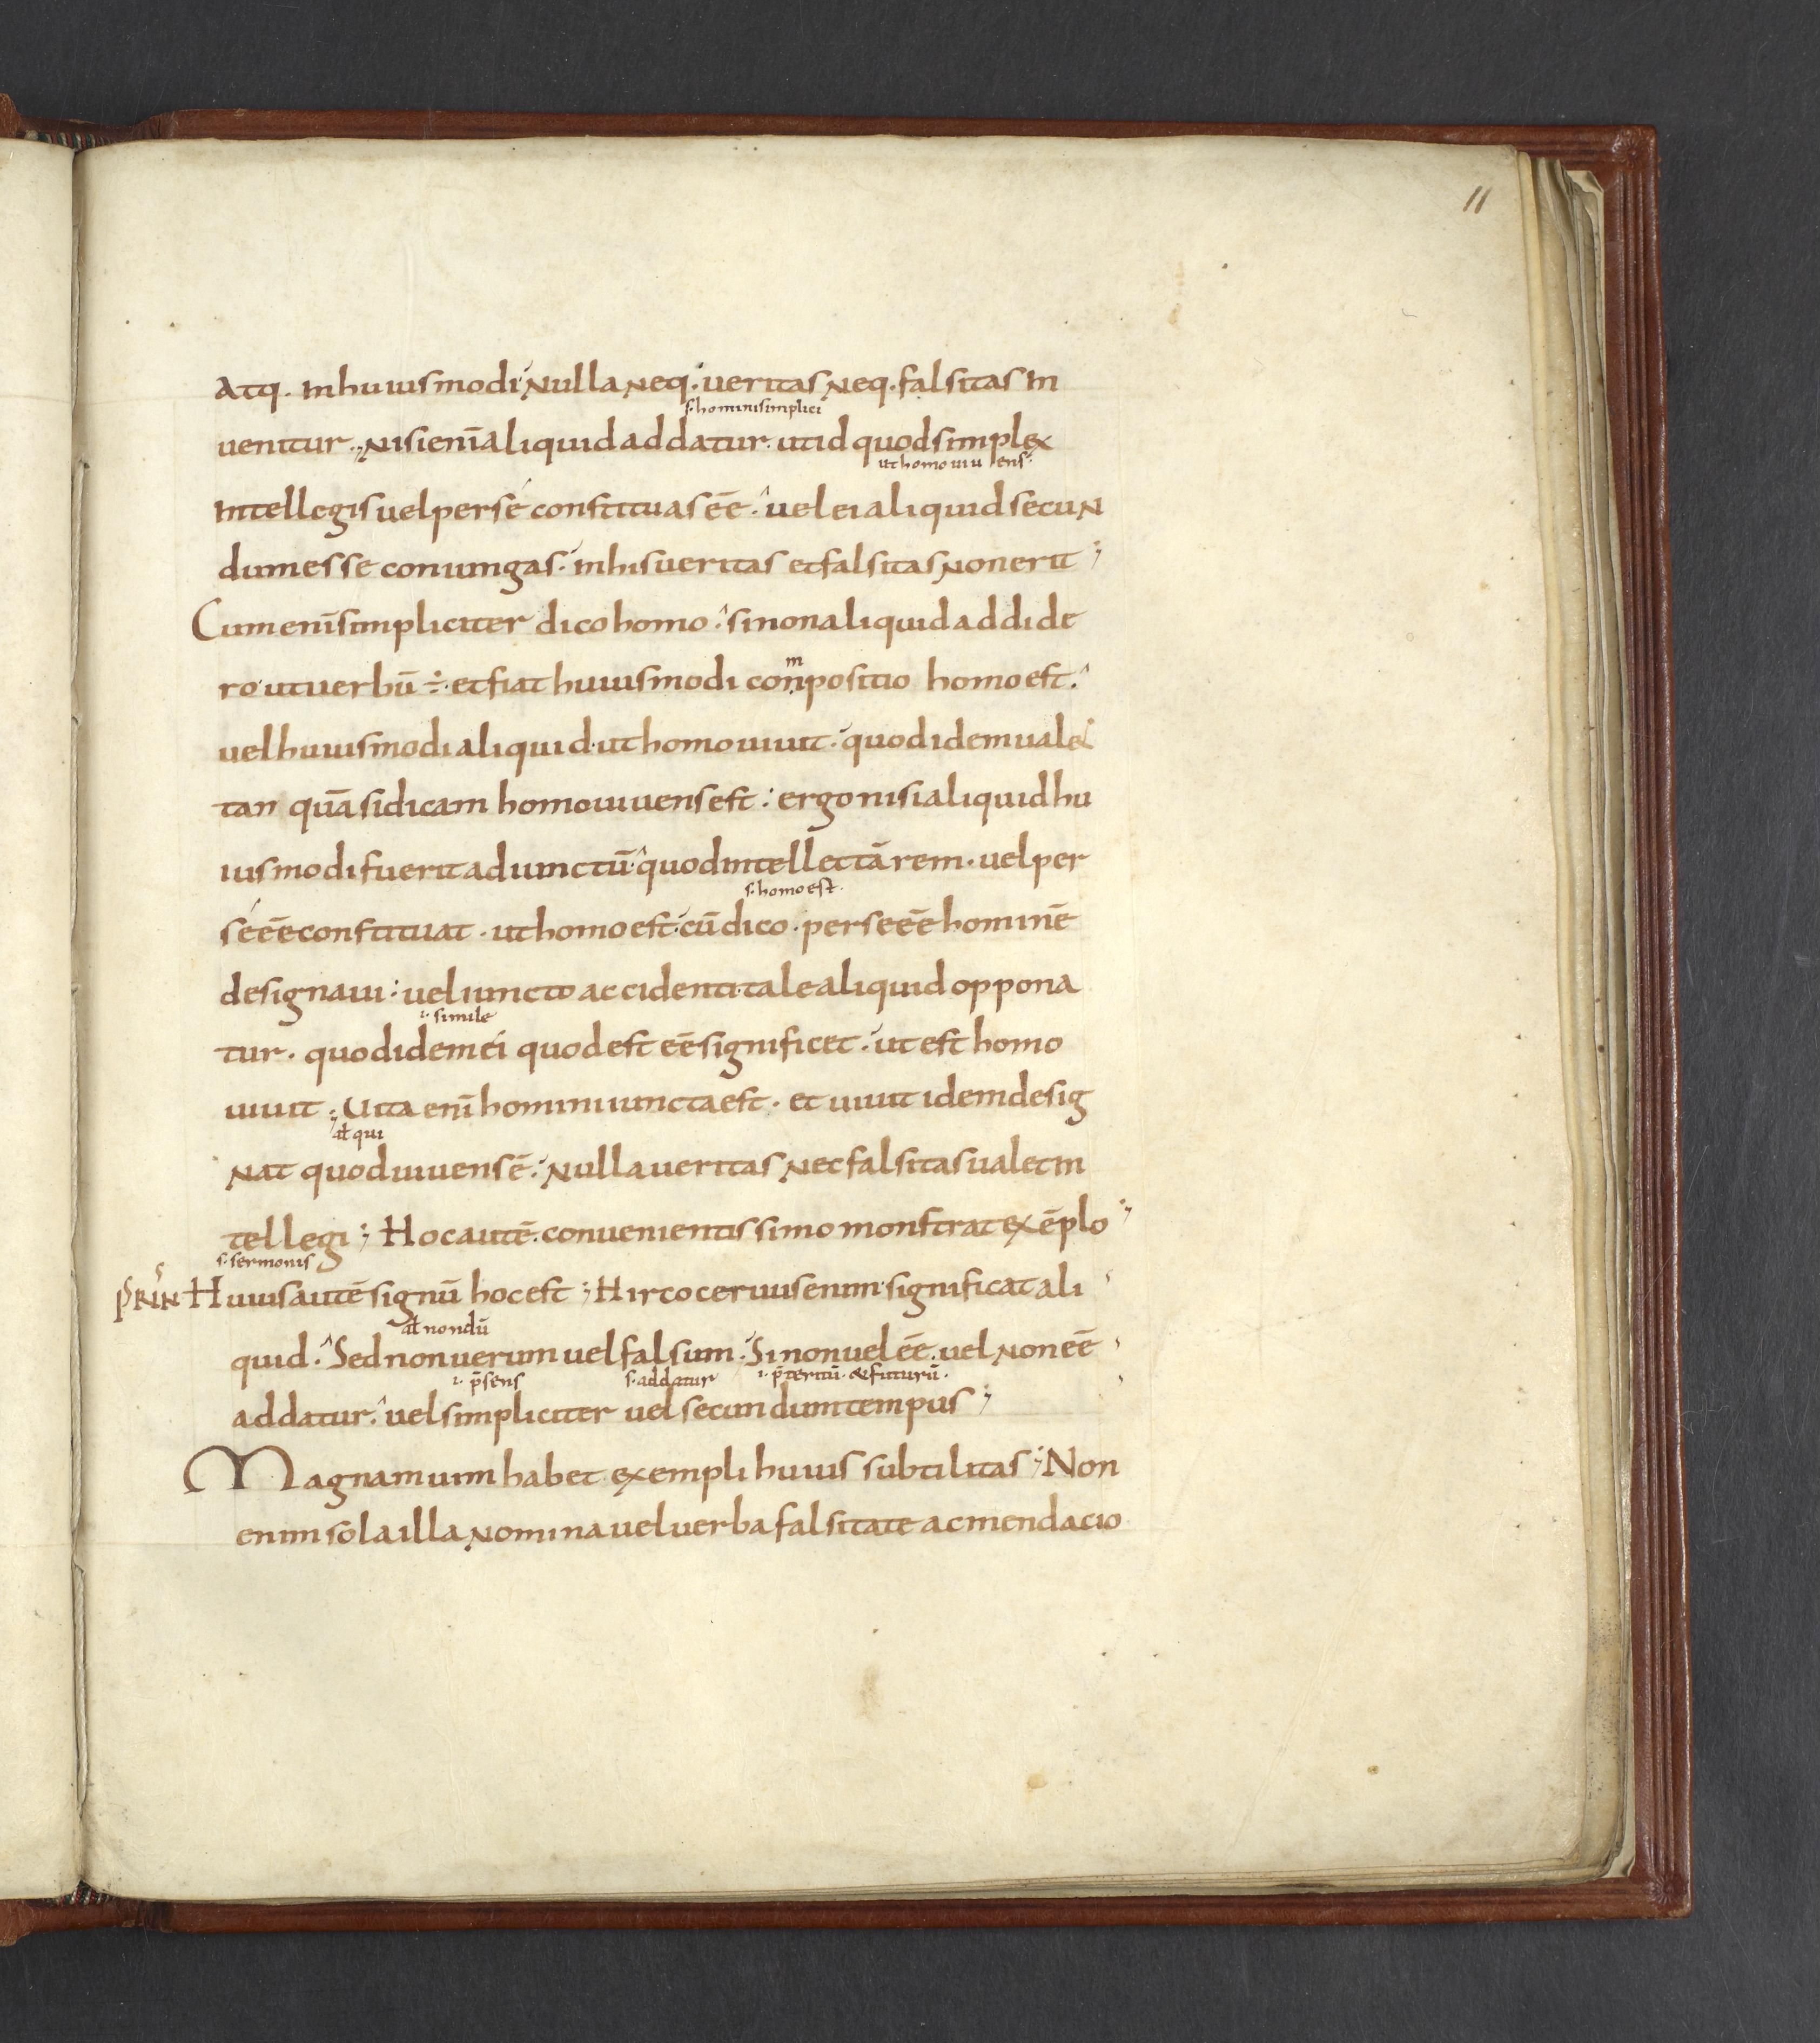 11
Atq. in huiusmodi nulla neq. ueritas neq. falsitas in
s. homini simplici
uenitur. Nisi enī aliquid addatur. ut id quod simplex
ut homo uiu ens.
intellegis uel per sé constituas eē. uel ei aliquid secun
dum esse coniungas. in his ueritas et falsitas non erit;
Cum enī simpliciter dico homo. si non aliquid addide
m
ro ut uerbū ÷. et fiat huiusmodi conpositio homo est.
uel huiusmodi aliquid. ut homo uiuit. quod idem ualet
tan quā si dicam homo uiuens est: ergo nisi aliquid hu
iusmodi fuerit adiunctū quod intellectā rem. uel per
s. homo est.
sé eē constituat. ut homo est. cū dico. per se eē hominē
designaui: uel iuncto accidenti tale aliquid oppona
i. simile
tur. quod idem ei quod est eē significet. ut est homo
uiuit; Uita enī homini iuncta est. et uiuit idem desig
aƚ qui
nat quod uiuens ē. nulla ueritas nec falsitas ualet in
tellegi; Hoc autē. conuenientissimo monstrat exēplo;
s. sermonis
Huius autē signū hoc est; Hircoceruus enim significat ali
aƚ nondū
quid. Sed non uerum uel falsum. Si non uel eē. uel non eē
i. p̄sens s. addatur i. p̄teritū. & futurū.
addatur. uel simpliciter uel secundum tempus;
Magnam uim habet exempli huius subtilitas; Non
enim sola illa nomina uel uerba falsitate ac mendacio